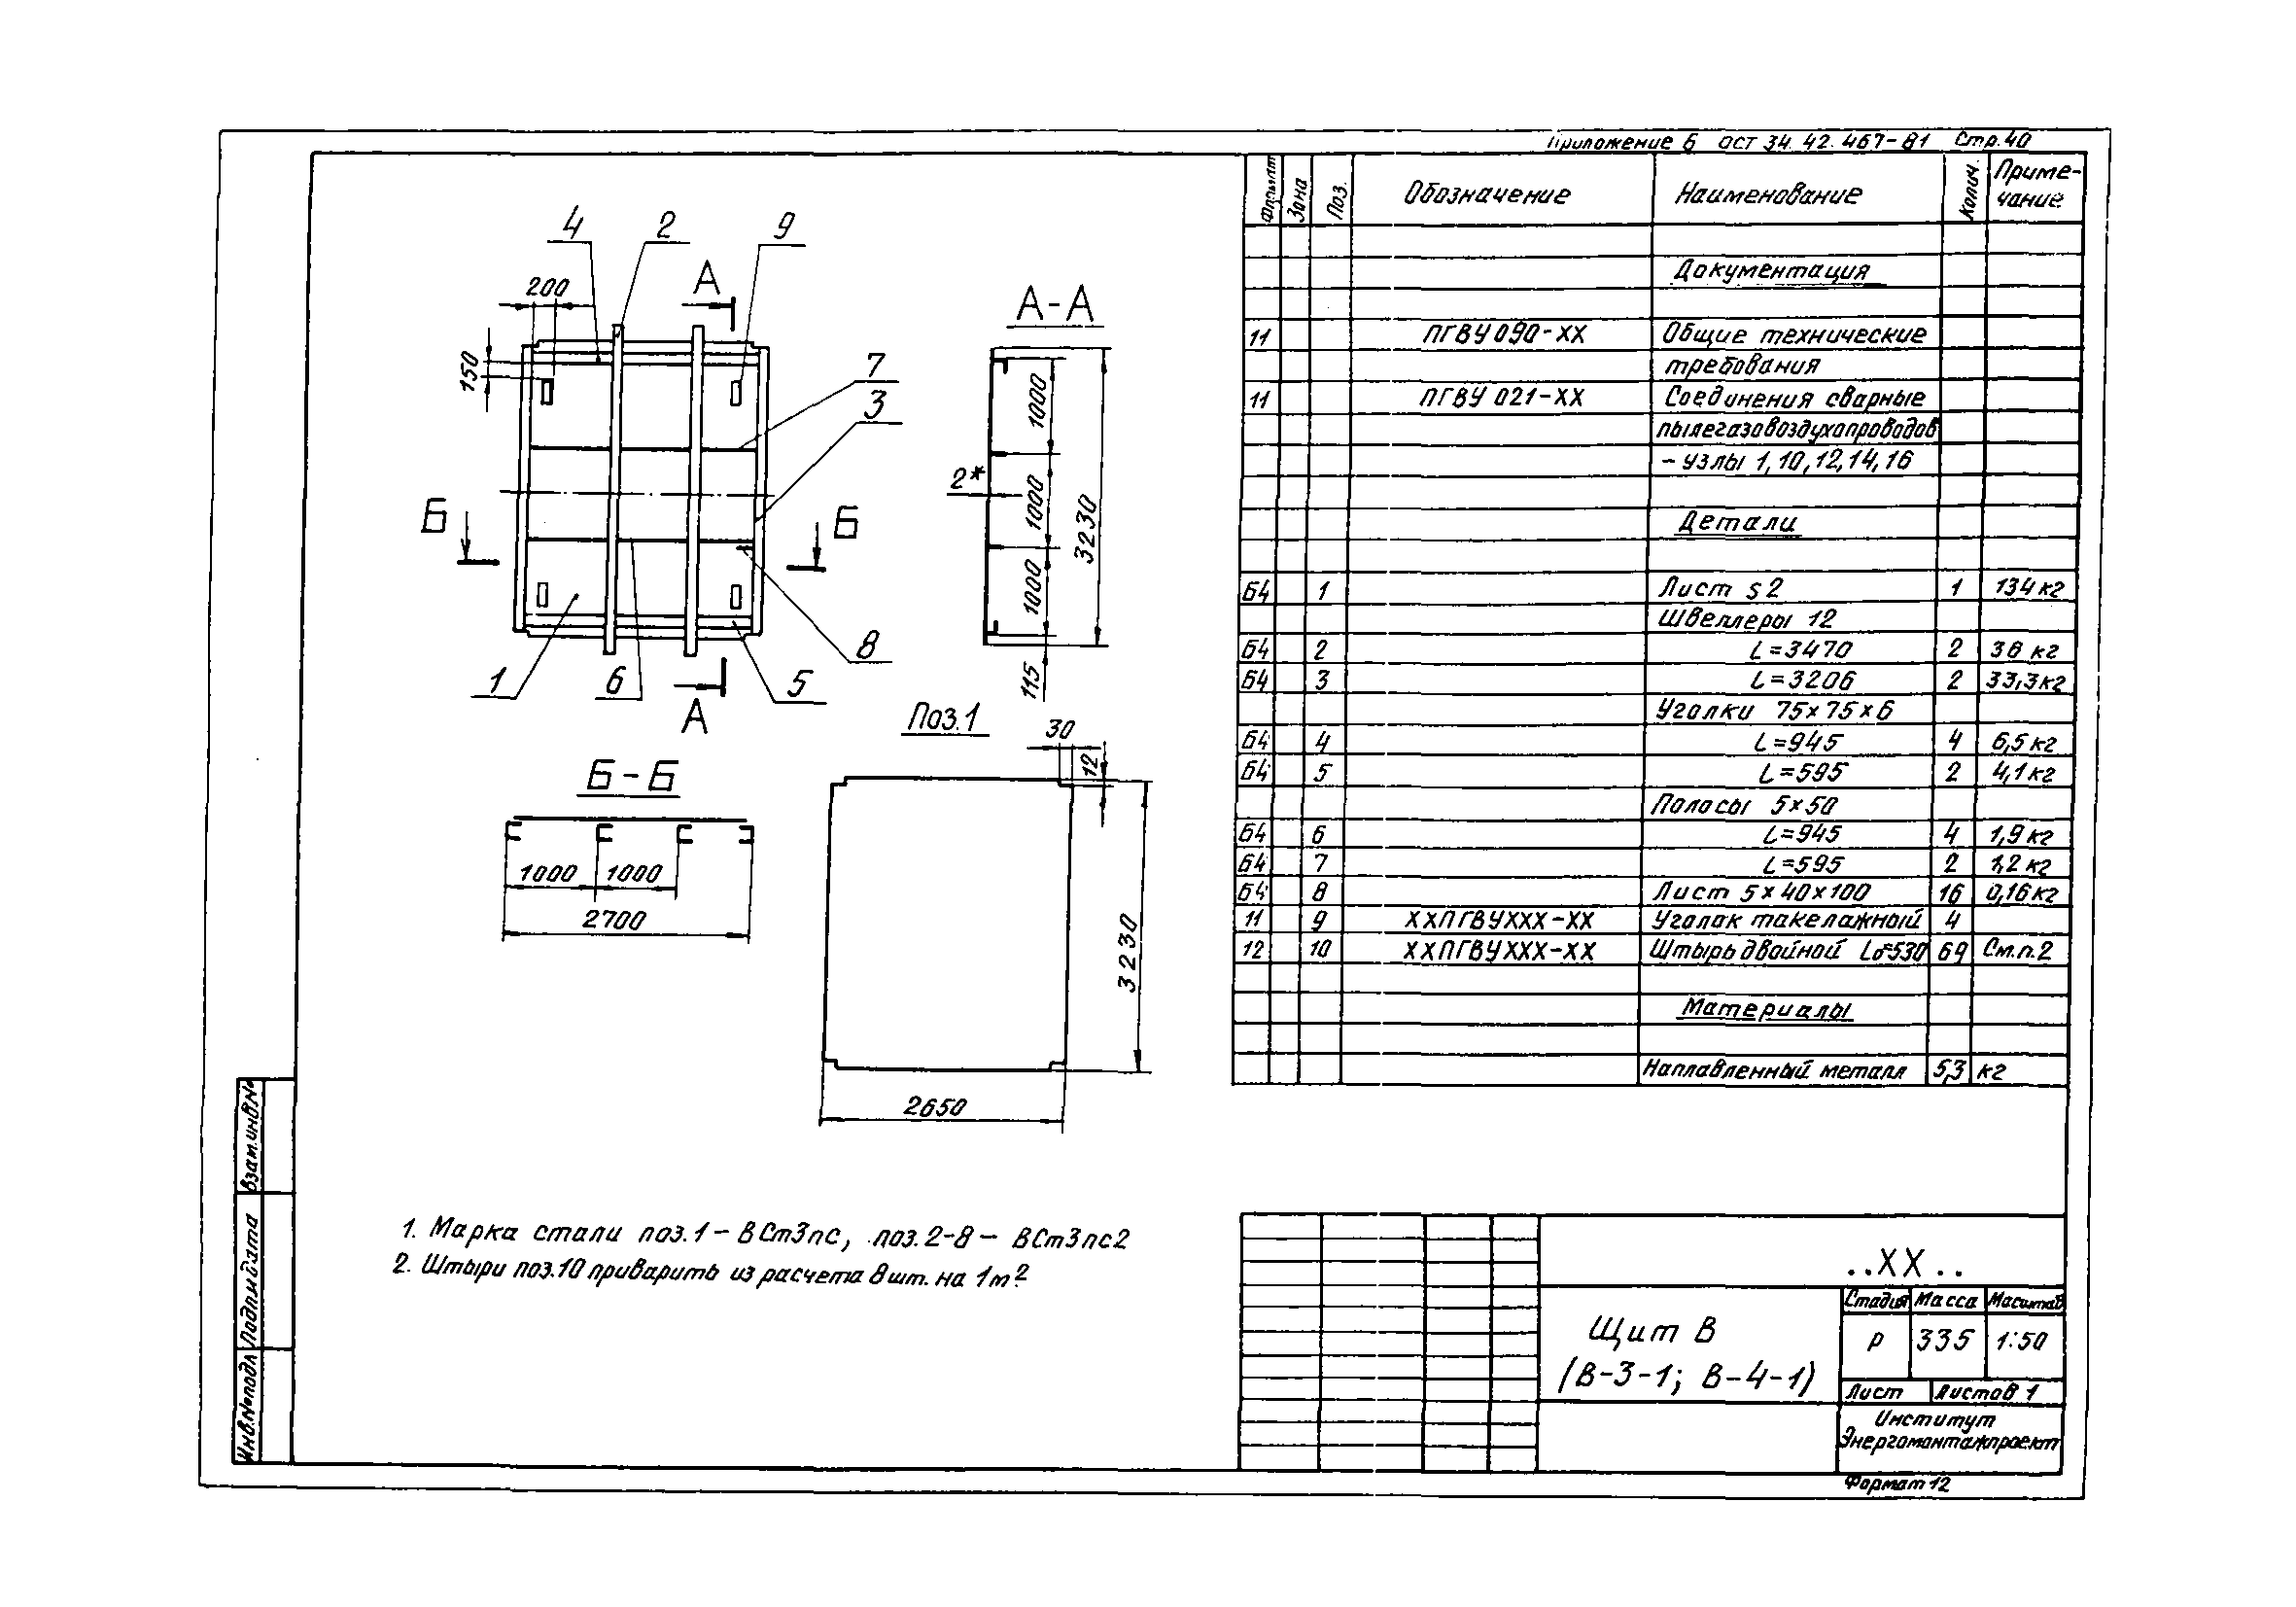 Приложение 6 ОСТ 34.42.467-81 Стр.40
Формат Зона Поз. Обозначение Наименование Колич. Приме-чание
Документация
11 ПГВУ 090-ХХ Общие технические
требования
11 ПГВУ 021-ХХ Соединения сварные
пылегазовоздухопроводов
- узлы 1, 10, 12, 14, 16
Детали
Б4 1 Лист s 2 1 134 кг
Швеллеры 12
Б4 2 L=3470 2 36 кг
Б4 3 L=3206 2 33,3 кг
Уголки 75×75×6
Б4 4 L=945 4 6,5 кг
Б4 5 L=595 2 4,1 кг
Полосы 5×50
Б4 6 L=945 4 1,9 кг
Б4 7 L=595 2 1,2 кг
Б4 8 Лист 5×40×100 16 0,16 кг
11 9 ХХПГВУХХХ-ХХ Уголок такелажный 4
12 10 ХХПГВУХХХ-ХХ Штырь двойной Lо=530 69 См.п.2
Материалы
Наплавленный металл 5,3 кг
4 2 9
200
А
150
7
3
Б Б
8
1 6 5
А
А-А
1000
2*
1000
3230
1000
115
Б-Б
1000 1000
2700
Поз.1
30
12
3230
2650
1. Марка стали поз.1 - ВСт3пс, поз.2-8 - ВСт3пс2
2. Штыри поз.10 приварить из расчета 8 шт. на 1м²
..ХХ..
Щит В
(В-3-1; В-4-1)
Стадия Масса Масштаб
Р 335 1:50
Лист Листов 1
Институт
Энергомонтажпроект
Формат 12
Взам.инв.№
Подп.и дата
Инв.№подл